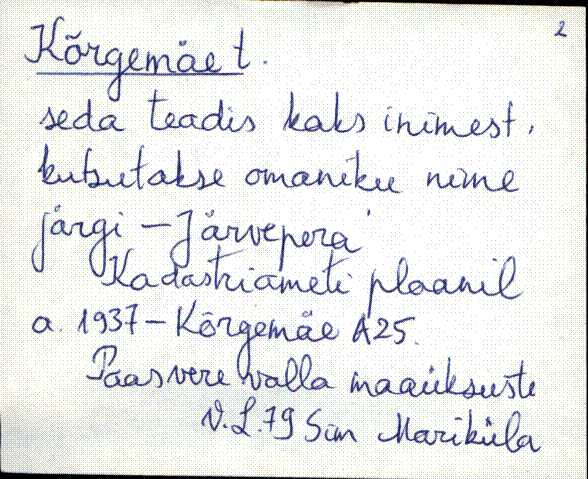 2
Kõrgemäe t.
seda teadis kaks inimest,
kutsutakse omaniku nime
järgi – Järvepera
Kadastriameti plaanil
a. 1937 – Kõrgemäe A25.
Paasvere valla maaüksuste
V.L.79 Sim Mariküla